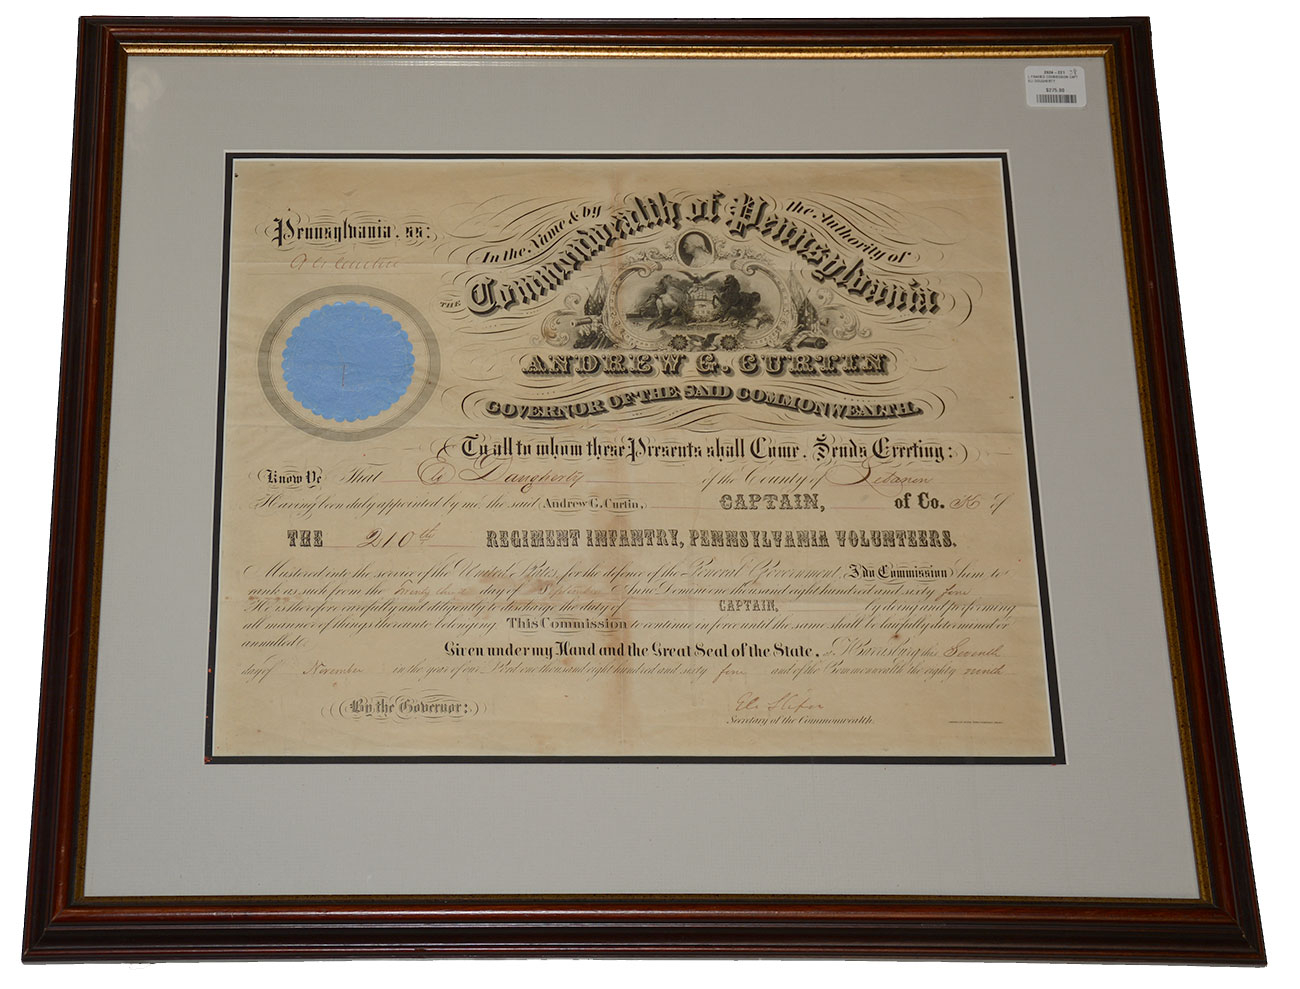 2626 - 221 38
$275.00
Pennsylvania, ss:
A G Curtin
In the Name & by the Authority of
THE Commonwealth of Pennsylvania
ANDREW G. CURTIN
GOVERNOR OF THE SAID COMMONWEALTH.
To all to whom these Presents shall Come, Sends Greeting:
Know Ye That Eli Daugherty of the County of Lebanon
Having been duly appointed by me, the said Andrew G. Curtin, CAPTAIN, of Co. K of
THE 210th REGIMENT INFANTRY, PENNSYLVANIA VOLUNTEERS.
Mustered into the service of the United States, for the defence of the General Government, I do Commission him to
rank as such from the day of September Anno Domini one thousand eight hundred and sixty four
He is therefore carefully and diligently to discharge the duty of CAPTAIN, by doing and performing
all manner of things thereunto belonging. This Commission to continue in force until the same shall be lawfully determined or
annulled.
Given under my Hand and the Great Seal of the State, at Harrisburg this Seventh
day of November in the year of our Lord one thousand eight hundred and sixty five and of the Commonwealth the eighty ninth
By the Governor:
Eli Slifer
Secretary of the Commonwealth.